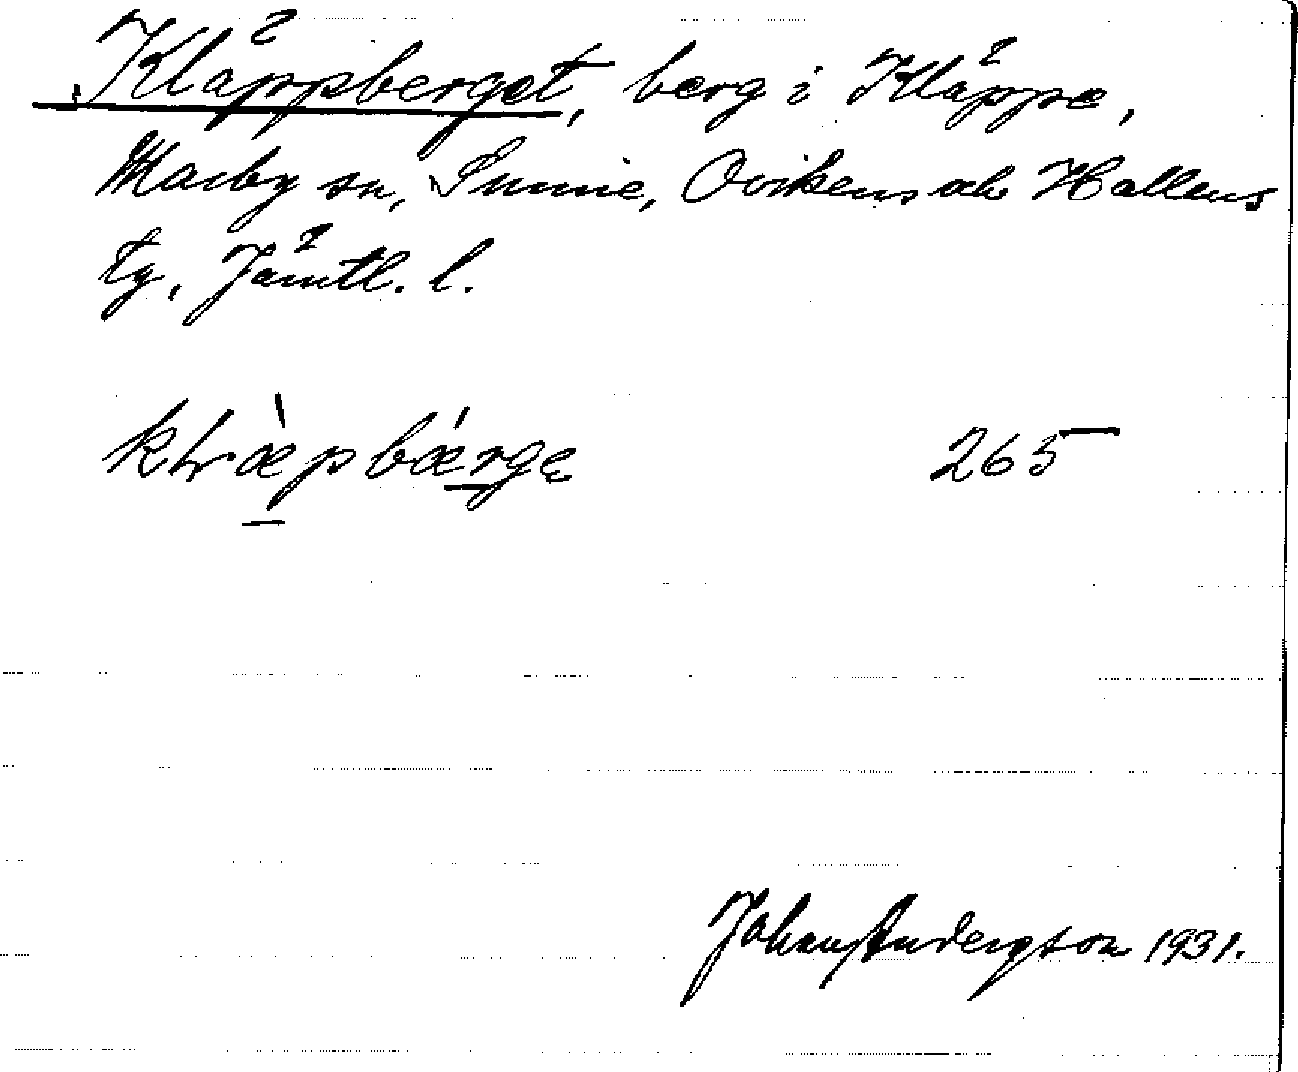 Kläppberget, berg i Kläppe,
Marby sn, Sunne, Ovikens och Hallens
tg, Jämtl. l.
265
Johan Andersson 1931.